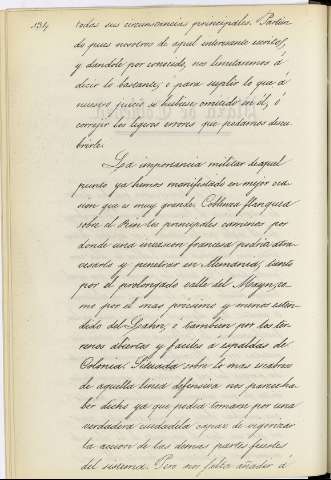 134
todas sus circunstancias principales. Partien
do pues nosotros de aquel interesante escrito,
y dandole por conocido, nos limitaremos á
decir lo bastante, ó para suplir lo que á
nuestro juicio se hubiese omitido en él, ó
correjir los ligeros errores que podamos descu
brirle.
La importancia militar de aquel
punto ya hemos manifestado en mejor oca
sion que es muy grande. Coblenza flanquea
sobre el Rin los principales caminos por
donde una invasion francesa podria atra-
vesarlo y penetrar en Alemania, tanto
por el prolongado valle del Mayn, co
mo por el mas procsimo y menos esten
dido del Lahn, ó tambien por los ter-
renos abiertos y faciles á espaldas de
Colonia. Situada sobre lo mas
de aquella linea defensiva nos parece ha
ber dicho ya que podia tomarse por una
verdadera ciudadela capaz de vigorizar
la accion de las demas partes fuertes
del sistema. Pero nos falta añadir á